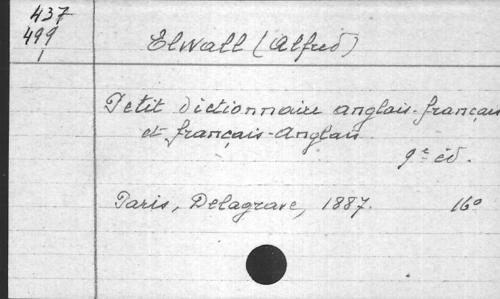 437
499
1
Elwall (Alfred)
Petit dictionnaire anglais-français
et français-anglais
9e éd.
Paris, Delagrave, 1887. 16°